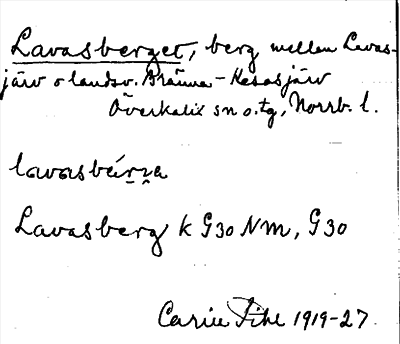 Lavasberget, berg mellan Lavas-
järv o landsv. Bränna - Kesasjärv
Överkalix sn o. tg, Norrb. l.
lavasbárza
Lavasberg k G30 Nm, G30
Carin Pihl 1919-27.